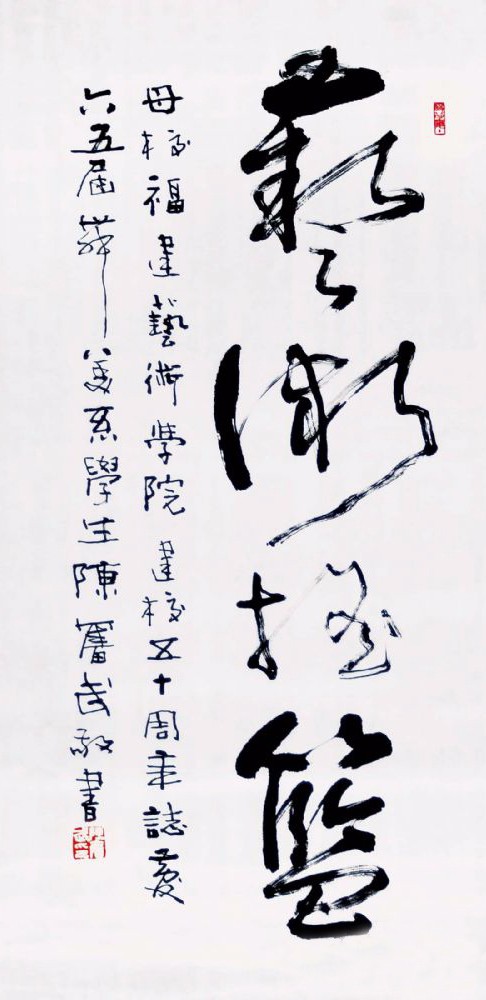 藝術搖籃
母校福建藝術學院建校五十周年誌慶
六五届美系學生陳奮武敬書